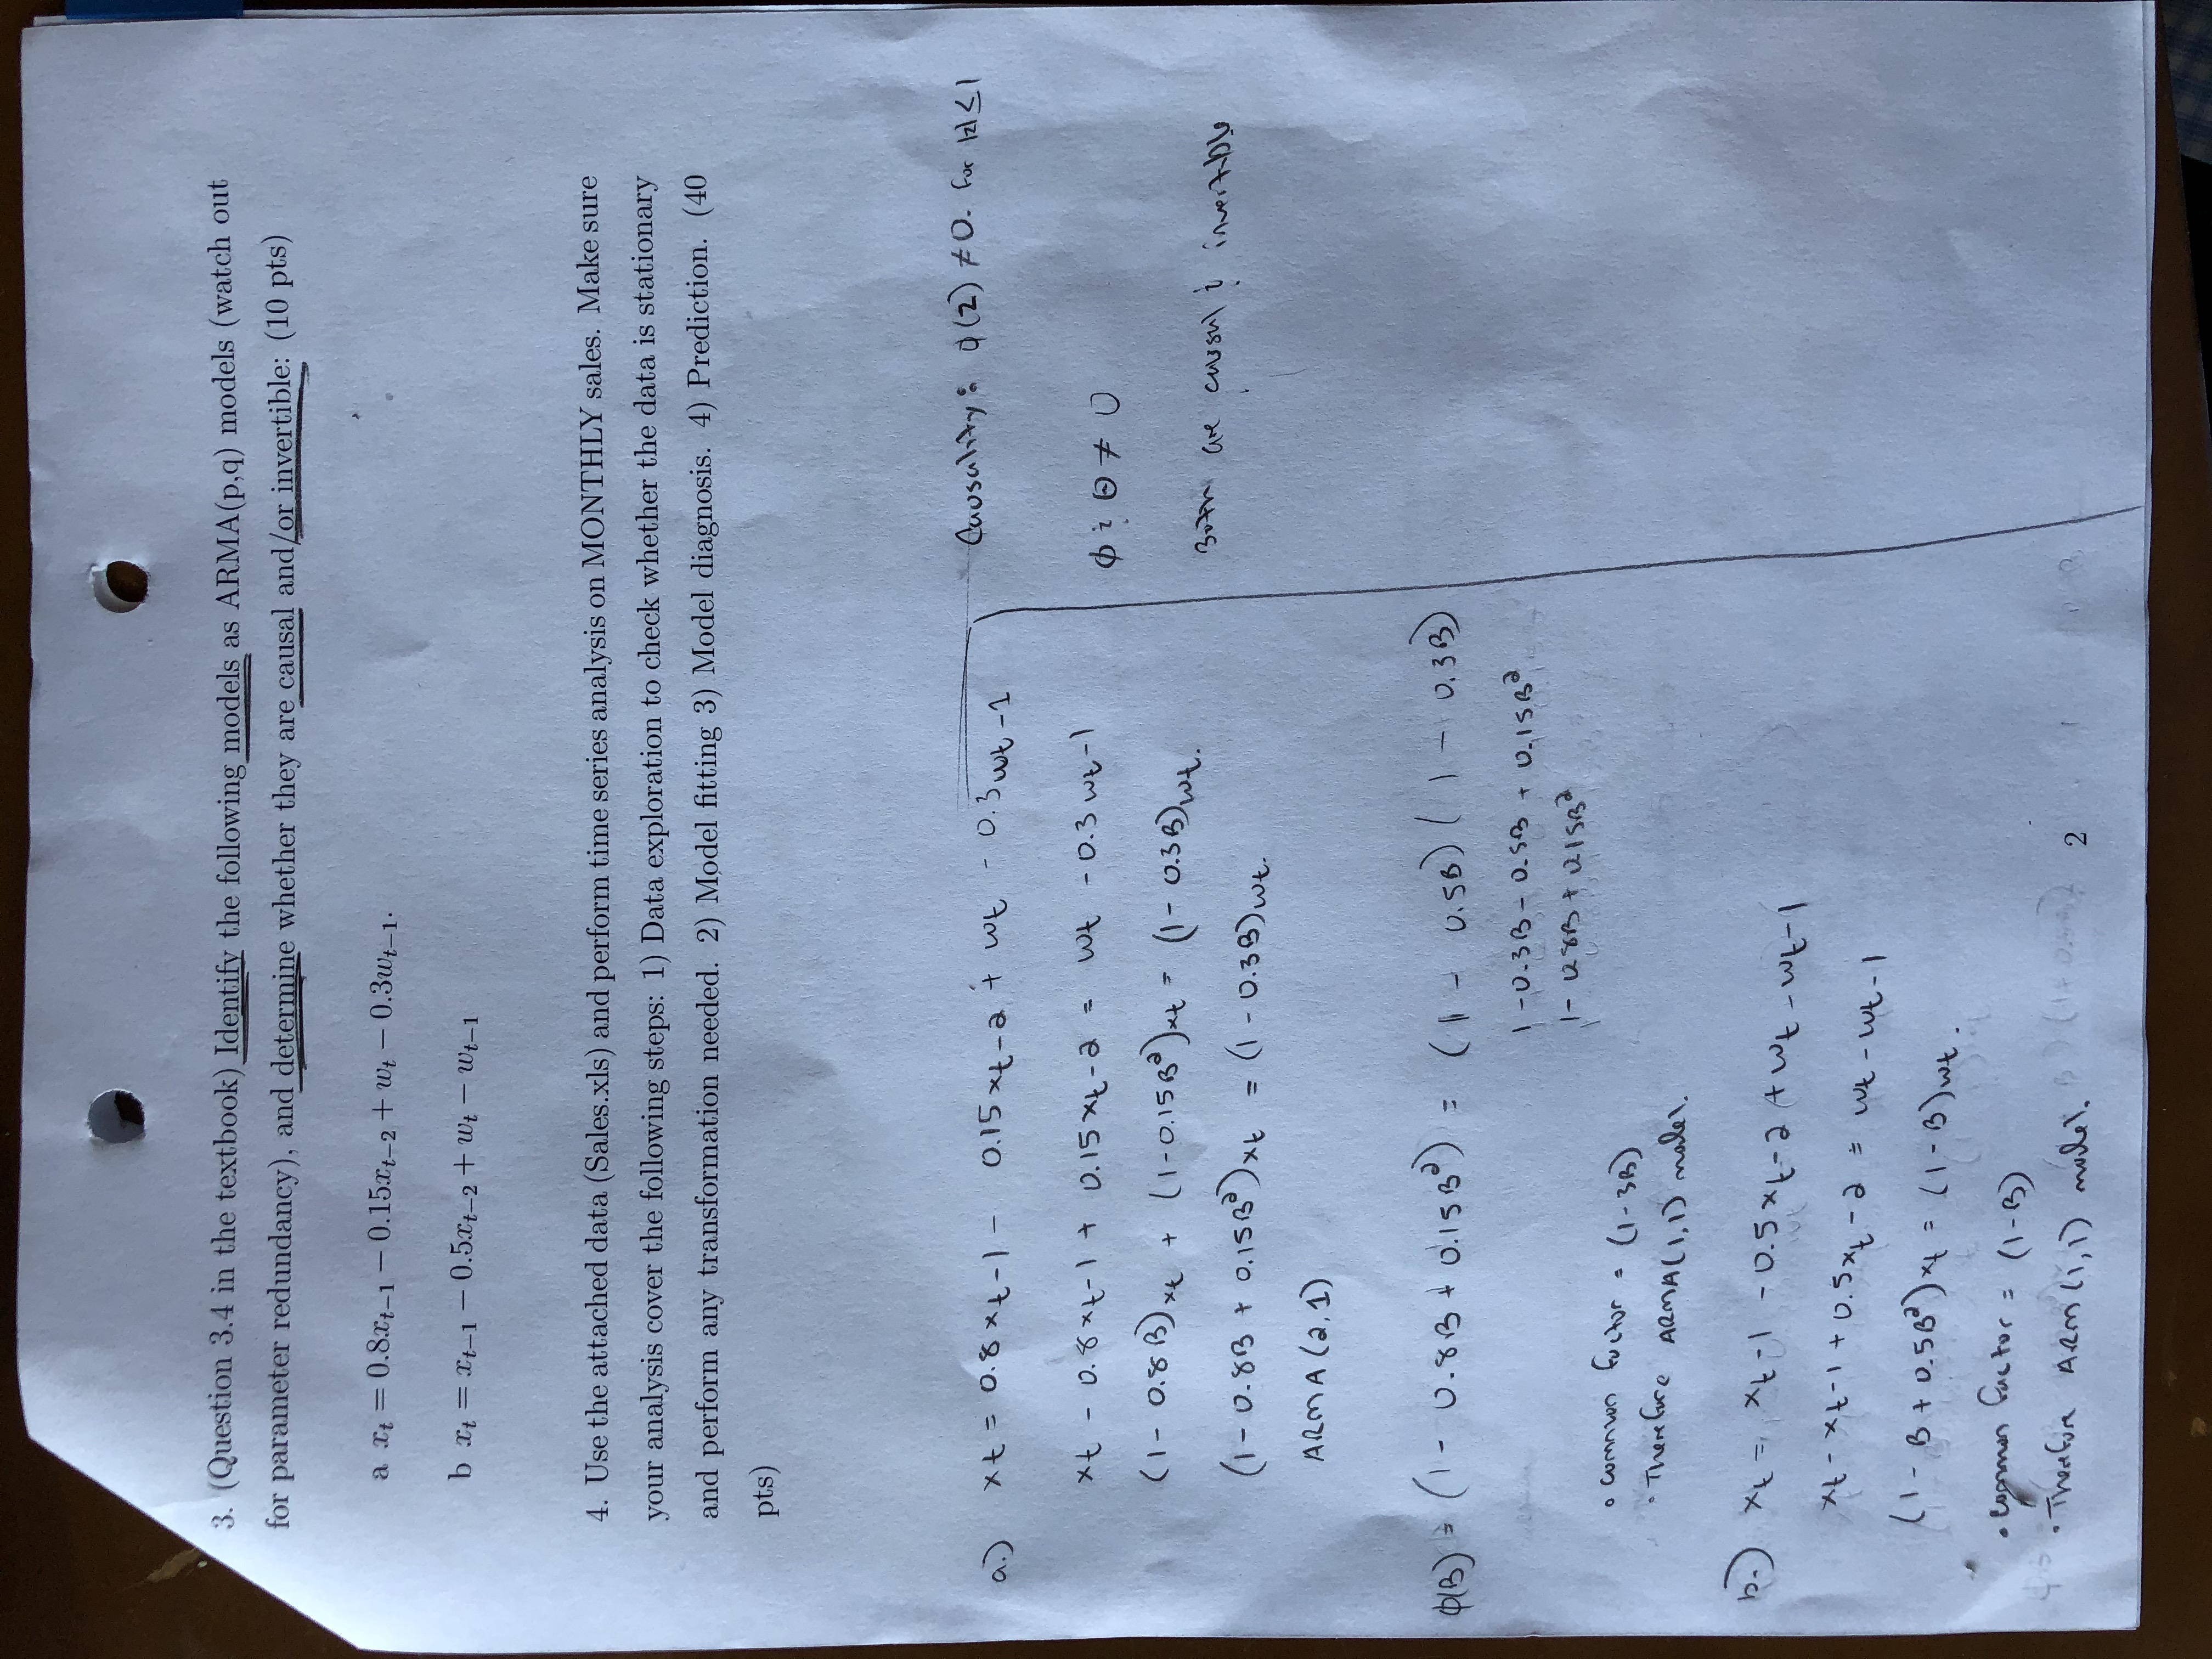 3. (Question 3.4 in the textbook) Identify the following models as ARMA(p,q) models (watch out
for parameter redundancy), and determine whether they are causal and/or invertible: (10 pts)
a x_t = 0.8x_{t−1} − 0.15x_{t−2} + w_t − 0.3w_{t−1}.
b x_t = x_{t−1} − 0.5x_{t−2} + w_t − w_{t−1}
4. Use the attached data (Sales.xls) and perform time series analysis on MONTHLY sales. Make sure
your analysis cover the following steps: 1) Data exploration to check whether the data is stationary
and perform any transformation needed. 2) Model fitting 3) Model diagnosis. 4) Prediction. (40
pts)
a.) xt = 0.8xt-1 - 0.15xt-2 + wt - 0.3wt-1
xt - 0.8xt-1 + 0.15xt-2 = wt - 0.3wt-1
(1 - 0.8B)xt + (1-0.15B²)xt = (1 - 0.3B)wt.
(1 - 0.8B + 0.15B²)xt = (1 - 0.3B)wt.
ARMA(2,1)
ϕ(B) = (1 - 0.8B + 0.15B²) = (1 - 0.5B)(1 - 0.3B)
1 - 0.3B - 0.5B + 0.15B²
1 - 0.8B + 0.15B²
• common factor = (1-3B)
• Therefore ARMA(1,1) model.
b.) xt = xt-1 - 0.5xt-2 + wt - wt-1
xt - xt-1 + 0.5xt-2 = wt - wt-1
(1 - B + 0.5B²)xt = (1 - B)wt.
• common factor = (1-B)
• Therefore ARM(1,1) model.
Causality: ϕ(z) ≠ 0. for |z| ≤ 1
ϕ & θ ≠ 0
Both are causal & invertible
2